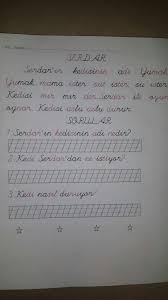 SERDAR
Serdar'ın kedisinin adı Yumak.
Yumak mama ister süt ister, su ister.
Kedisi mır mır der. Serdar ile oyun
oynar. Kedisi uslu uslu durur.
SORULAR
1. Serdar'ın kedisinin adı nedir?
2. Kedi Serdar'dan ne istiyor?
3. Kedi nasıl duruyor?